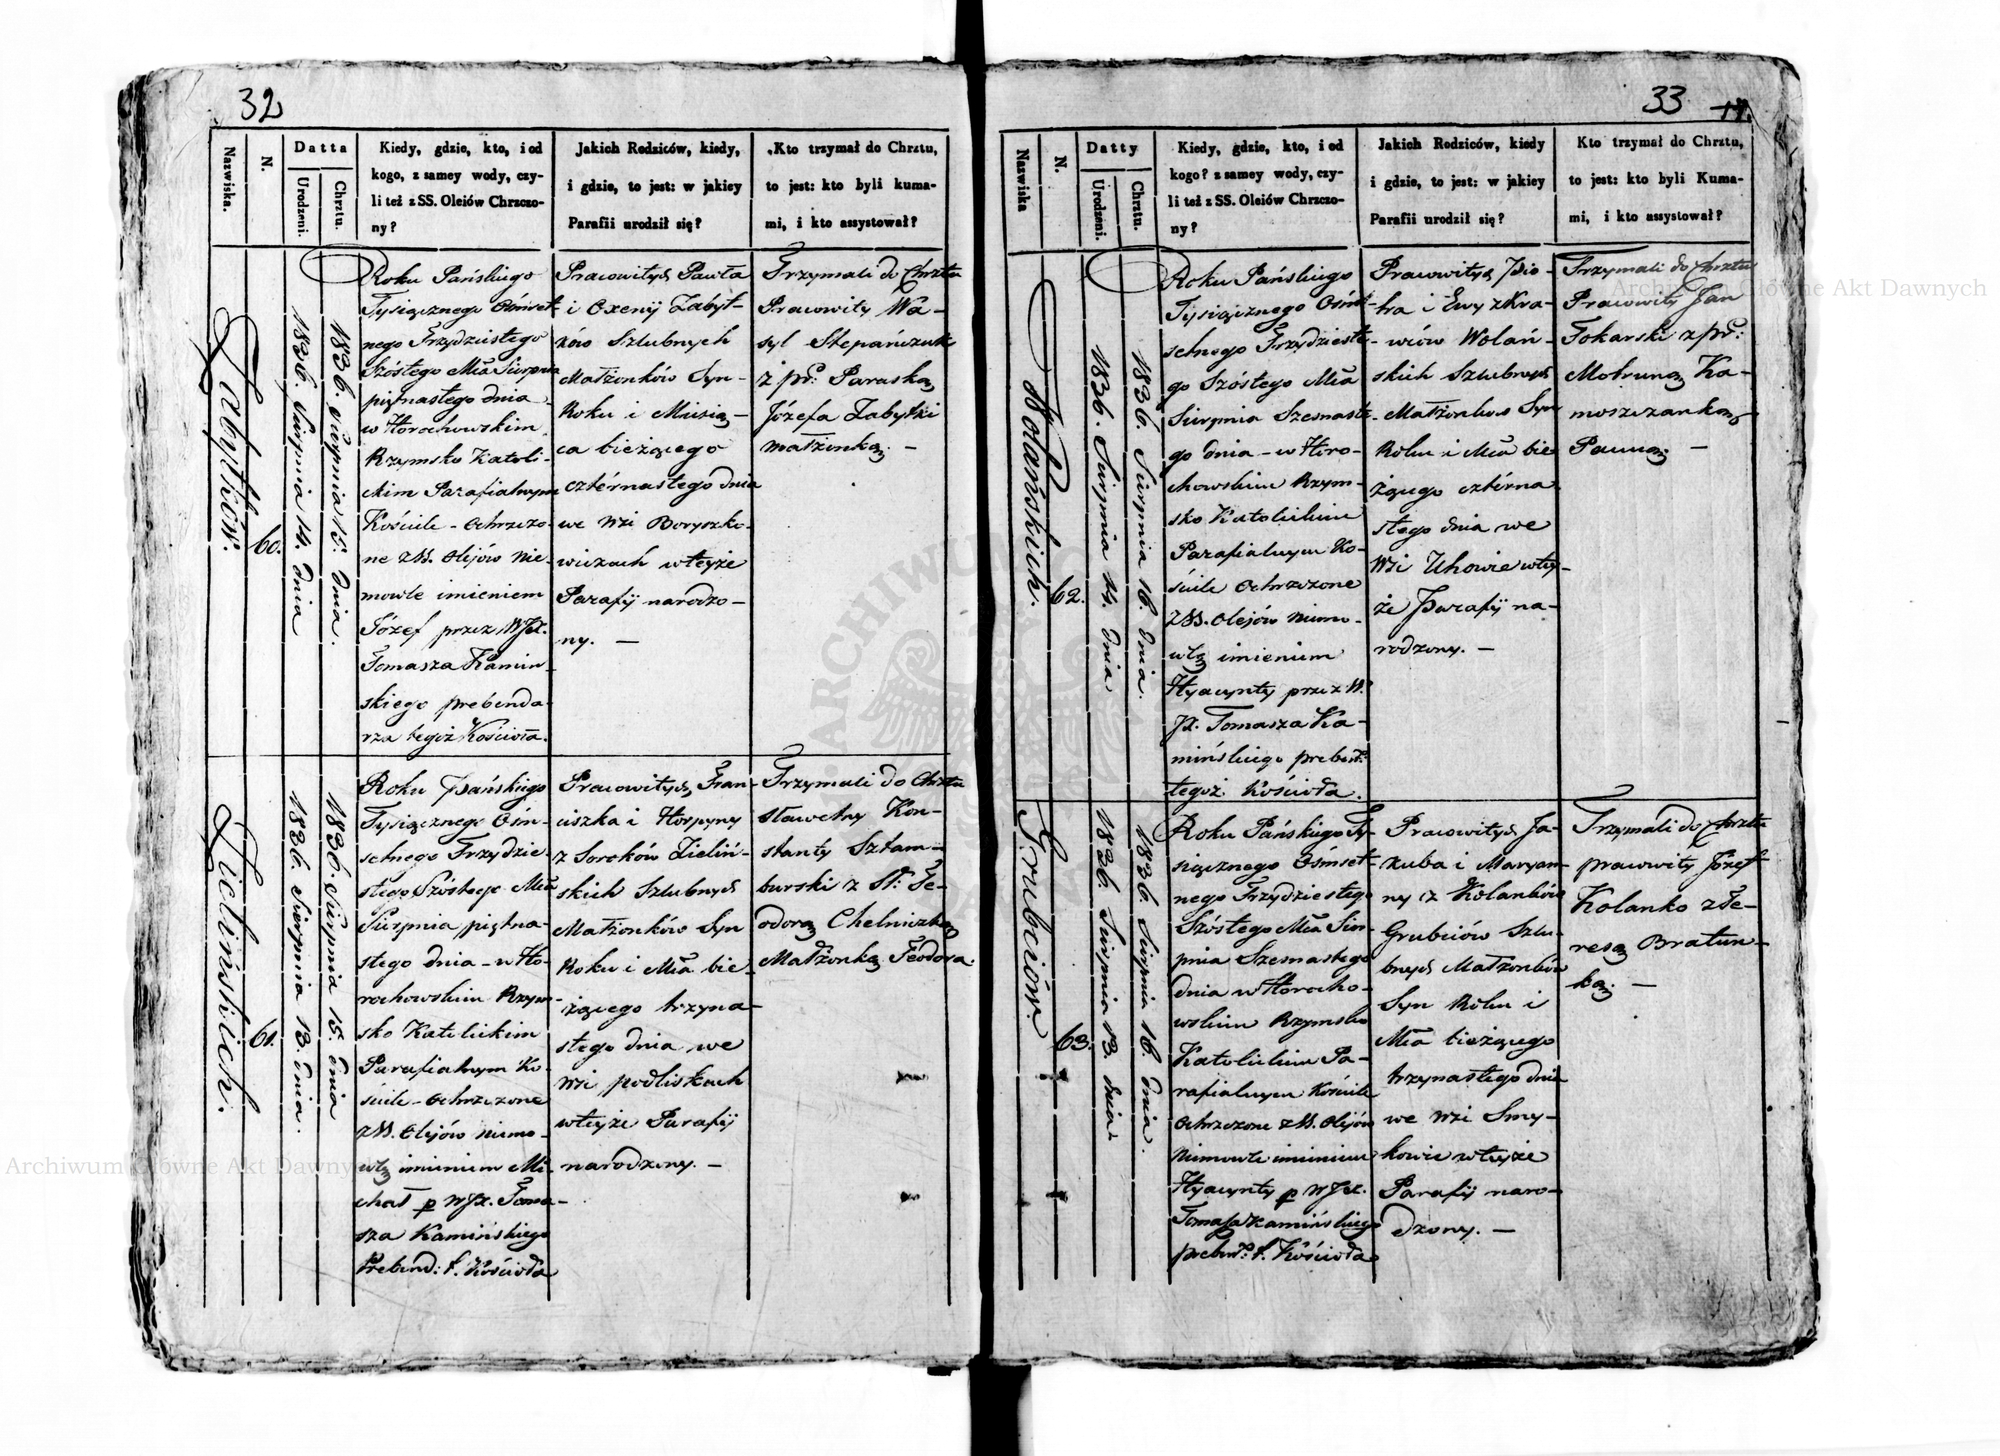 32
Nazwiska.
N.
Datta
Urodzeni.
Chrztu.
Kiedy, gdzie, kto, i od
kogo, z samey wody, czy-
li też z SS. Oleiów Chrzczo-
ny?
Jakich Rodziców, kiedy,
i gdzie, to jest: w jakiey
Parafii urodził się?
Kto trzymał do Chrztu,
to jest: kto byli kuma-
mi, i kto assystował?
Zabytków.
60.
1836. Sierpnia 14. dnia
1836. Sierpnia 15. dnia.
Roku Pańskiego
Tysiącznego Ośmset-
nego Trzydziestego
Szóstego Mca Sierpnia
piętnastego dnia
w Horochowskim
Rzymsko Katoli-
ckim Parafialnym
Kościele - ochrzczo-
ne z SS. Olejów nie-
mowle imieniem
Józef przez WJX.
Tomasza Kamin-
skiego prebenda-
rza tegoż Kościoła.
Pracowitych Pawła
i Oxenij Zabyt-
ków Szlubnych
Małżonków Syn
Roku i Miesią-
ca bieżącego
cztérnastego dnia
we Wsi Boryszko-
wiczach w teyże
Parafij narodzo-
ny. —
Trzymali do Chrztu
Pracowity Wa-
syl Stepańczuk
z pr: Paraską
Józefa Zabytki
małżonką. —
Zielińskich.
61.
1836. Sierpnia 13. dnia.
1836. Sierpnia 15. dnia
Roku Pańskiego
Tysiącznego Ośm-
setnego Trzydzie-
stego Szóstego Mca
Sierpnia piętna-
stego dnia - w Ho-
rochowskim Rzym-
sko Katolickim
Parafialnym Ko-
ściele - ochrzczone
z SS. Olejów niemo-
wlę imieniem Mi-
chał p WJX. Toma-
sza Kamińskiego
Prebend: t. Kościoła
Pracowitych Fran-
ciszka i Horpyny
z Soroków Zieliń-
skich Szlubnych
Małżonków Syn
Roku i Mca bie-
żącego trzyna-
stego dnia we
Wsi podliskach
w teyże Parafij
narodzony. —
Trzymali do Chrztu
sławetny Kon-
stanty Sztam-
burski z Te-
odorą Chelniczką
Małżonką Teodora.
33
17.
Nazwiska
N.
Datty
Urodzeni.
Chrztu.
Kiedy, gdzie, kto, i od
kogo? z samey wody, czy-
li też z SS. Oleiów Chrzczo-
ny?
Jakich Rodziców, kiedy
i gdzie, to jest: w jakiey
Parafii urodził się?
Kto trzymał do Chrztu,
to jest: kto byli Kuma-
mi, i kto assystował?
Wolańskich.
62.
1836. Sierpnia 14. dnia
1836. Sierpnia 16. dnia.
Roku Pańskiego
Tysiącznego Ośm-
setnego Trzydzieste-
go Szóstego Mca
Sierpnia Szesnaste-
go dnia - w Horo-
chowskim Rzym-
sko Katolickim
Parafialnym Ko-
ściele ochrzczone
z SS. Olejów niemo-
wlę imieniem
Hyacynty przez W.
JX. Tomasza Ka-
mińskiego preben:
tegoż Kościoła.
Pracowitych Pio-
tra i Ewy z Kra-
wców Wolań-
skich Szlubnych
Małżonków Syn
Roku i Mca bie
żącego cztérna
stego dnia we
Wsi Uhowie w tey-
że Parafij na-
rodzony. —
Trzymali do Chrztu
Pracowity Jan
Tokarski z pr:
Motruną Ka-
moszczanką
Panną. —
Grubciów.
63.
1836. Sierpnia 13. dnia
1836. Sierpnia 16. dnia.
Roku Pańskiego Ty-
siącznego Ośmset-
nego Trzydziestego
Szóstego Mca Sier-
pnia Szesnastego
dnia w Horocho-
wskim Rzymsko
Katolickim Pa-
rafialnym Kościele
ochrzczone z SS. Olejów
niemowle imieniem
Hyacynty p WJX.
Tomasza Kamińskiego
preben: t. Kościoła
Pracowitych Ja-
kuba i Maryan-
ny z Kolanków
Grubciów Szlu-
bnych Małżonków
Syn Roku i
Mca bieżącego
trzynastego dnia
we Wsi Smy-
kowie w teyże
Parafij naro-
dzony. —
Trzymali do Chrztu
pracowity Józef
Kolanko z Te-
resą Bratun-
ką. —
Archiwum Główne Akt Dawnych
Archiwum Główne Akt Dawnych
ARCHIWUM